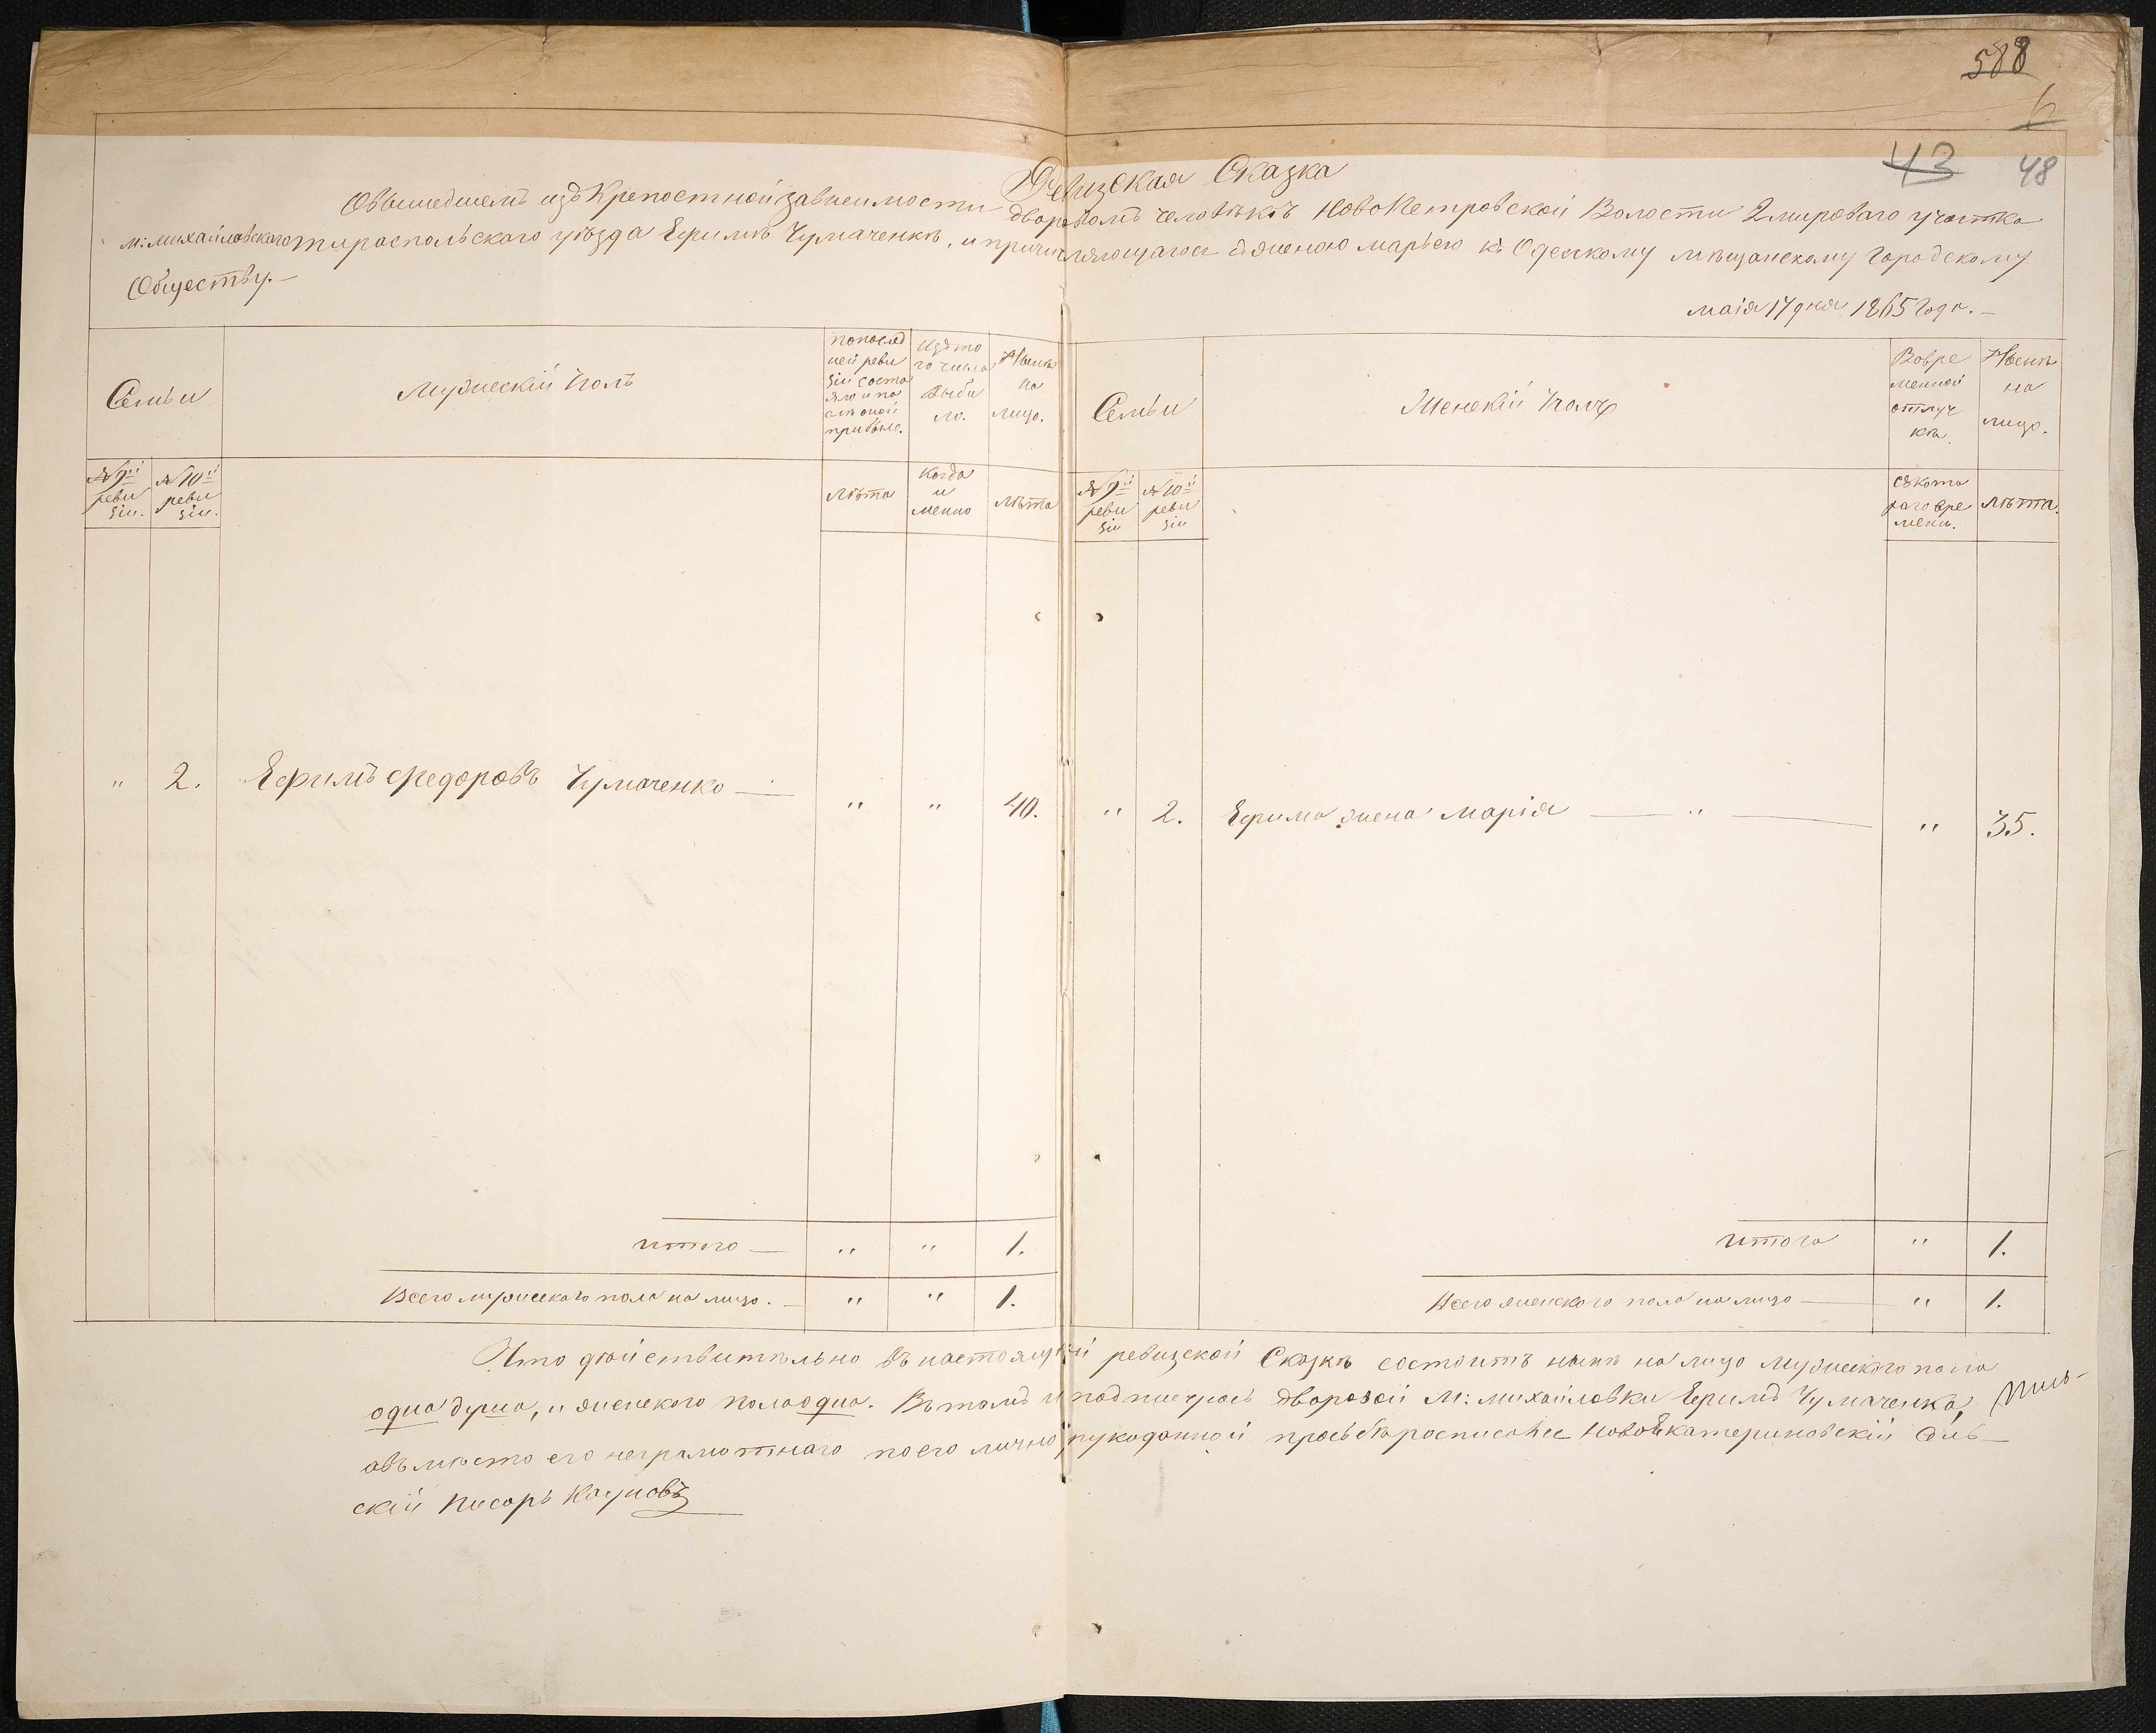 588
6
43 48
Ревизская Сказка
Овышедшемъ изъ Крепостной зависимости дворовомъ человѣкѣ Новопетровской Волости 2 мироваго участка
м: михайловского тираспольского уѣзда Ефимѣ Чумаченкѣ, и причисляющагося сженою марьею къ Одескому мѣщанскому Городскому
Обществу. —
маія 17 дня 1865 Года. —
Семьи
Мужескій полъ
По послед
ней реви
зіи состо
яло и по
слѣ оной
прибыло.
Изъ то
го числа
выбы
ло.
Нынѣ
на
лицо.
Семьи
Женскій полъ
Вовре
менной
отлуч
кѣ.
Нынѣ
на
лицо.
№ 9й
реви
зіи.
№ 10й
реви
зіи.
лѣта
когда
и
менно
лѣта
№ 9й
реви
зіи
№ 10й
реви
зіи
съ кото
раго вре
мени.
лѣта.
" 2. Ефимъ Федоровъ Чумаченко — " " 40. " 2. Ефима жена Марія — " — " 35.
итого — " " 1. итого " 1.
Всего мужескаго пола на лицо. — " " 1. Всего женского пола на лицо — " 1.
Что дѣйствительно въ настоящей ревизской Сказкѣ состоитъ нынѣ на лицо мужеского пола
одна душа, и женского пола одна. Въ томъ и подписуюсь дворовой М: михайловки Ефимъ Чумаченко,
авъ мѣсто его неграмотнаго по его лично рукоданной прозьбѣ росписався НовоЕкатериновскій Сѣль-
скій писарь